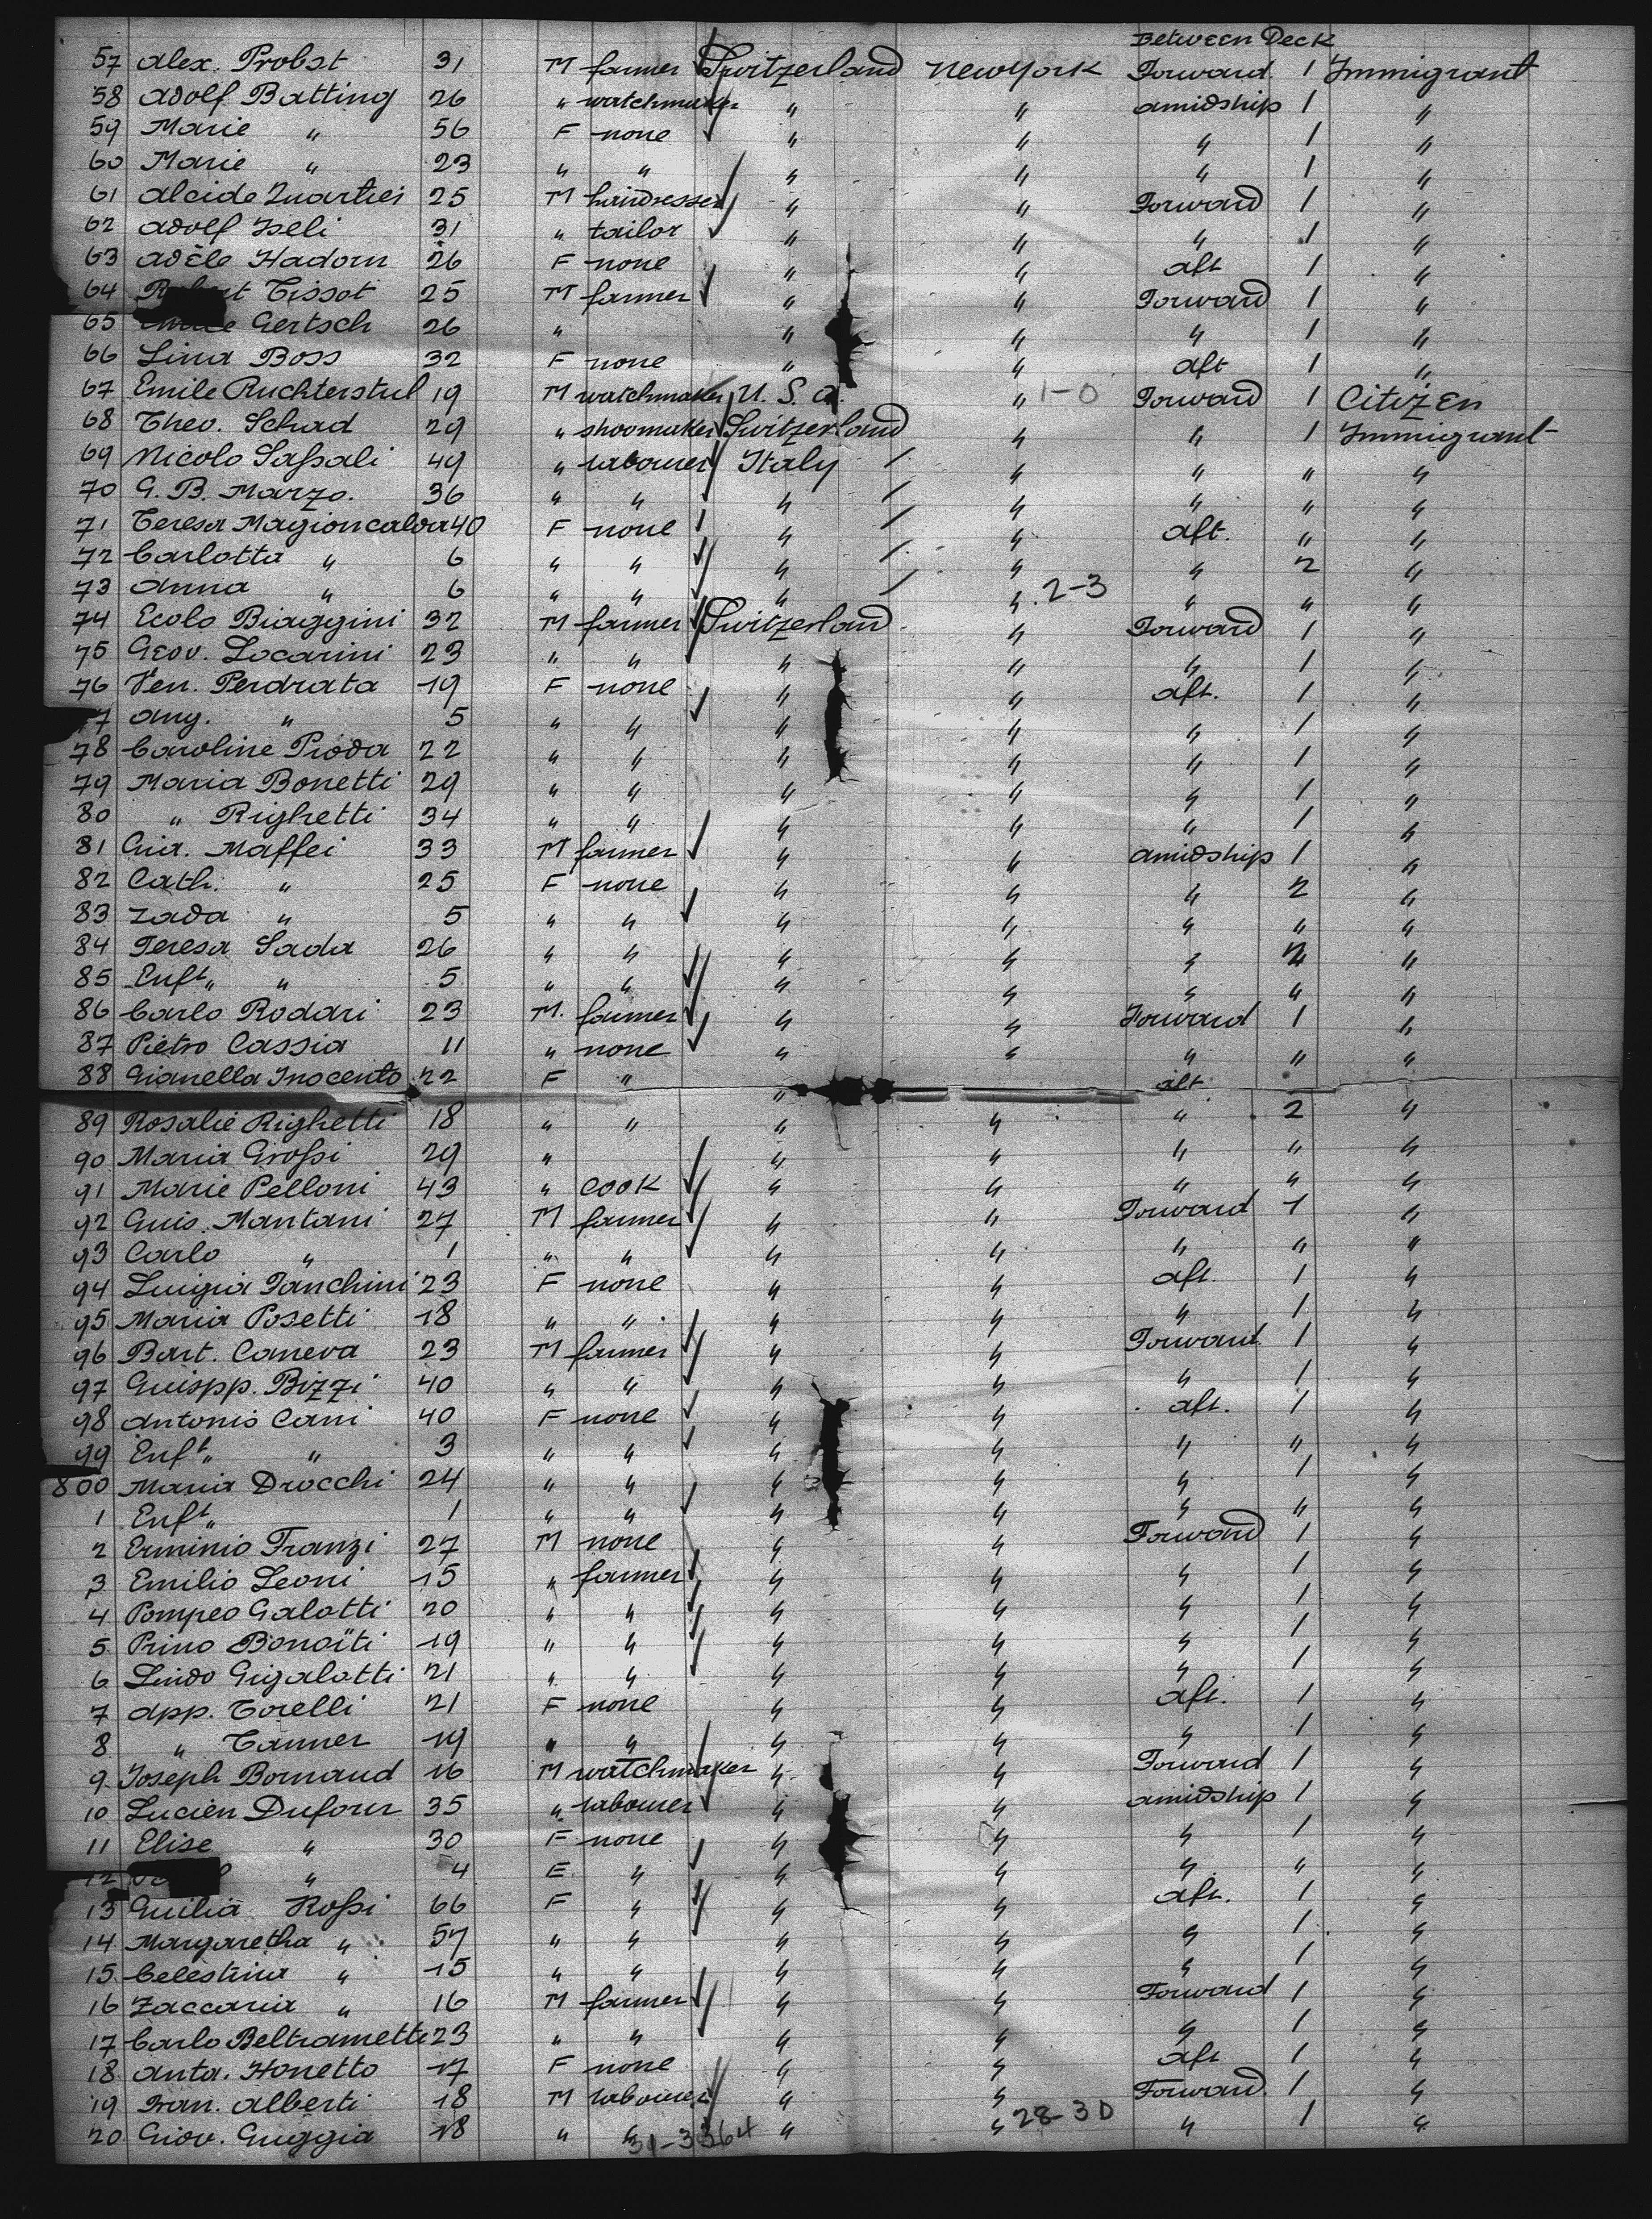 Between Deck
57 Alex. Probst 31 M farmer Switzerland New York Forward 1 Immigrant
58 Adolf Batting 26 " watchmaker " " amidship 1 "
59 Marie " 56 F none " " " 1 "
60 Marie " 23 " " " " " 1 "
61 Alcide 25 M hairdresser " " Forward 1 "
62 Adolf Iseli 31 " tailor " " " 1 "
63 Adèle Hadorn 26 F none " " aft 1 "
64 Tissot 25 M farmer " " Forward 1 "
65 Gertsch 26 " " " " 1 "
66 Lina Boss 32 F none " " aft 1 "
67 Emile Ruchterstul 19 M watchmaker U. S. A. " 1-0 Forward 1 Citizen
68 Theo. Schad 29 " shoomaker Switzerland " " 1 Immigrant
69 Nicolo Saßali 49 " labourer Italy / " " " "
70 G. B. Marzo. 36 " " " / " " " "
71 Teresa Magioncalda 40 F none " / " aft. " "
72 Carlotta " 6 " " " / " " 2 "
73 Anna " 6 " " " / " 2-3 " " "
74 Ecolo Biaggini 32 M farmer Switzerland " Forward 1 "
75 Geov. Locarini 23 " " " " " 1 "
76 Ven. Perdrata 19 F none " " aft. 1 "
77 Ang. " 5 " " " " " 1 "
78 Caroline Pioda 22 " " " " " 1 "
79 Maria Bonetti 29 " " " " " 1 "
80 " Righetti 34 " " " " " 1 "
81 Gia. Maffei 33 M farmer " " amidship 1 "
82 Cath. " 25 F none " " " 2 "
83 Zada " 5 " " " " " " "
84 Teresa Sada 26 " " " " " 2 "
85 Enft " " 5 " " " " " " "
86 Carlo Rodari 23 M. farmer " " Forward 1 "
87 Pietro Cassia 11 " none " " " " "
88 Gianella Inocento 22 F " " aft
89 Rosalie Righetti 18 " " " " " 2 "
90 Maria Großi 29 " " " " " "
91 Marie Pelloni 43 " cook " " " " "
92 Guis. Mantani 27 M farmer " " Forward 1 "
93 Carlo " 1 " " " " " " "
94 Luigia Fanchini 23 F none " " aft. 1 "
95 Maria Posetti 18 " " " " " 1 "
96 Bart. Caneva 23 M farmer " " Forward 1 "
97 Guispp. Bizzi 40 " " " " " 1 "
98 Antonio Cani 40 F none " " aft. 1 "
99 Enft " " 3 " " " " " " "
800 Maria Drocchi 24 " " " " " 1 "
1 Enft " 1 " " " " " " "
2 Erminio Franzi 27 M none " " Forward 1 "
3 Emilio Leoni 15 " farmer " " " 1 "
4 Pompeo Galotti 20 " " " " " 1 "
5 Primo Bonoïti 19 " " " " " 1 "
6 Lindo Gigalotti 21 " " " " " 1 "
7 App. Torelli 21 F none " " aft. 1 "
8 " Tanner 19 " " " " " 1 "
9 Joseph Bornand 16 M watchmaker " " Forward 1 "
10 Lucien Dufour 35 " labourer " " amidship 1 "
11 Elise " 30 F none " " " 1 "
12 " 4 E. " " " " " "
13 Guilia Roßi 66 F " " " aft. 1 "
14 Margaretha " 57 " " " " " 1 "
15 Celestina " 15 " " " " " 1 "
16 Zaccaria " 16 M farmer " " Forward 1 "
17 Carlo Beltrametti 23 " " " " " 1 "
18 Anta. Honetto 17 F none " " aft 1 "
19 Fran. Alberti 18 M labourer " " Forward. 1 "
20 Giov. Guggia 18 " " " " 28-30 " 1 "